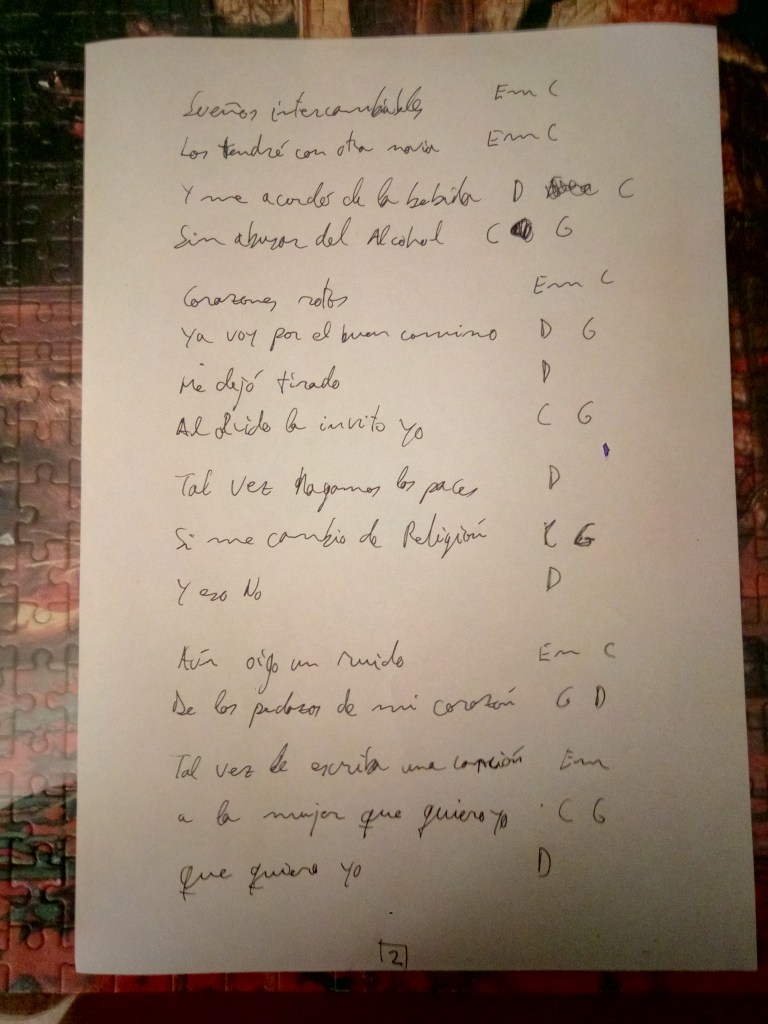 Sueños intercambiables Em C
Los tendré con otra novia Em C
Y me acordé de la bebida D C
Sin abusar del Alcohol C G
Corazones rotos Em C
Ya voy por el buen camino D G
Me dejó tirado D
Al olvido la invito yo C G
Tal vez hagamos las paces D
Si me cambio de Religión C G
Y eso No D
Aún oigo un ruido Em C
De los pedazos de mi corazón G D
Tal vez le escriba una canción Em
a la mujer que quiero yo C G
que quiero yo D
2